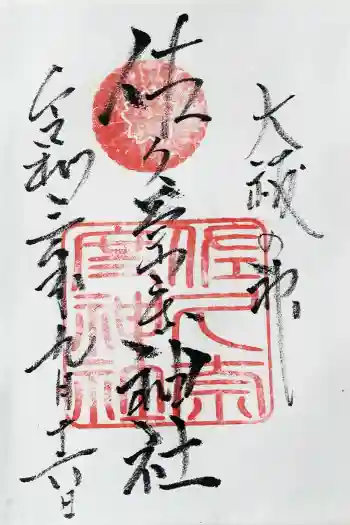 大祓の神
佐久奈度神社
令和二年九月十六日
佐久奈度神社